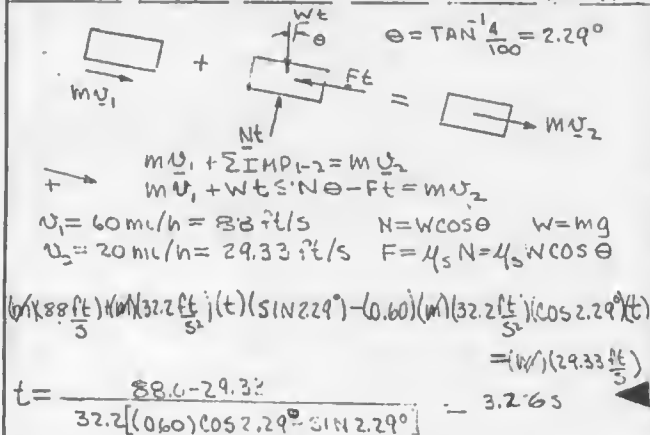 Wt
θ
θ = TAN⁻¹ 4/100 = 2.29°
+
Ft
=
mv₁
mv₂
Nt
+
mv₁ + ΣIMP₁₋₂ = mv₂
mv₁ + Wt SINθ - Ft = mv₂
v₁ = 60 mi/h = 88 ft/s N = WCOSθ W = mg
v₂ = 20 mi/h = 29.33 ft/s F = μₛ N = μₛ WCOSθ
(m)(88 ft/s) + (m)(32.2 ft/s²)(t)(SIN 2.29°) - (0.60)(m)(32.2 ft/s²)(COS 2.29°)(t)
= (m)(29.33 ft/s)
t = 88.0 - 29.33 / 32.2[(0.60)COS 2.29° - SIN 2.29°] = 3.26 s